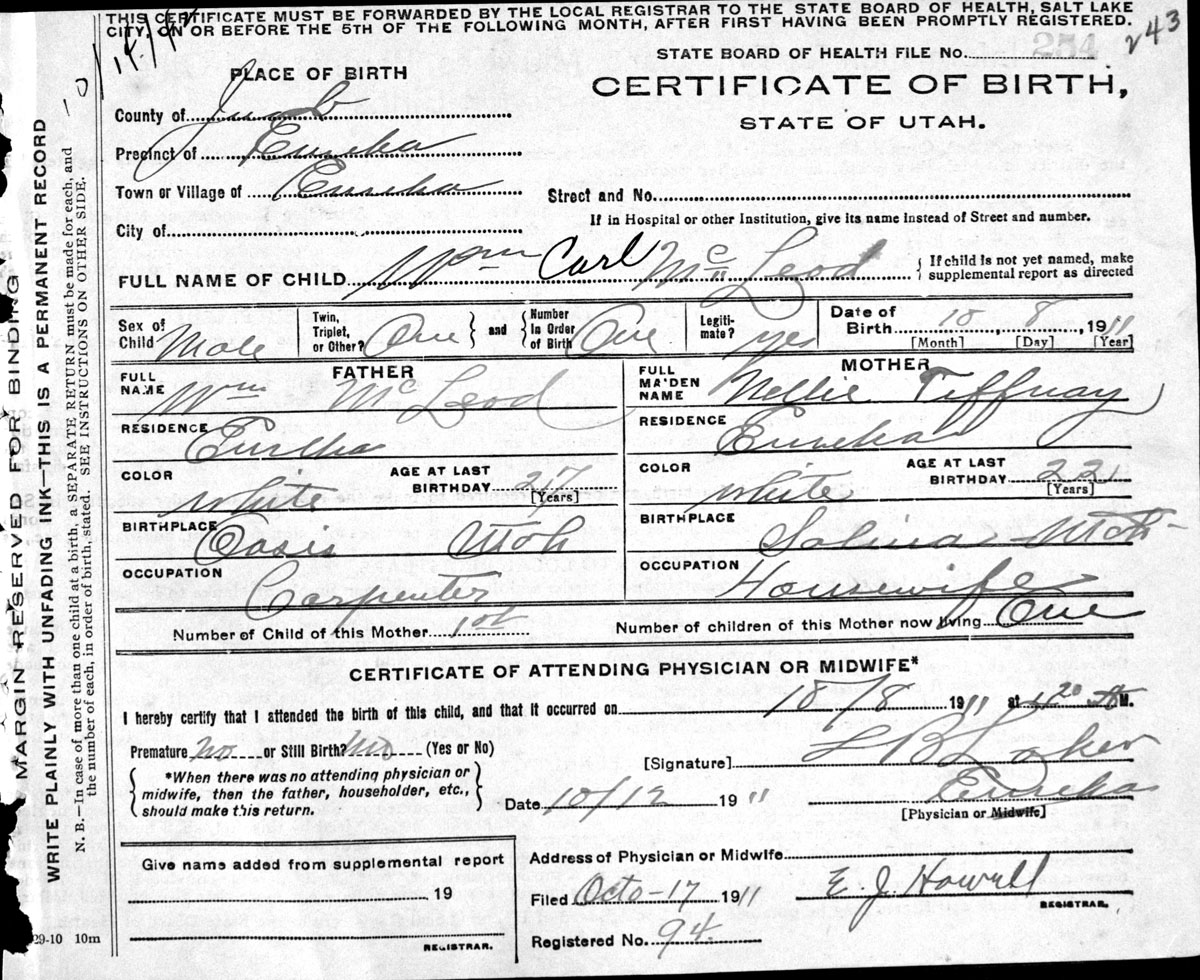 THIS CERTIFICATE MUST BE FORWARDED BY THE LOCAL REGISTRAR TO THE STATE BOARD OF HEALTH, SALT LAKE
CITY, ON OR BEFORE THE 5TH OF THE FOLLOWING MONTH, AFTER FIRST HAVING BEEN PROMPTLY REGISTERED.
STATE BOARD OF HEALTH FILE No. 254 243
PLACE OF BIRTH
CERTIFICATE OF BIRTH,
STATE OF UTAH.
County of Juab
Precinct of Eureka
Town or Village of Eureka
Street and No.
If in Hospital or other Institution, give its name instead of Street and number.
City of
FULL NAME OF CHILD Wm Carl McLeod
If child is not yet named, make
supplemental report as directed
Sex of Child Male
Twin, Triplet, or Other? One and Number in Order of Birth One
Legitimate? yes
Date of Birth 10 8, 1911
[Month] [Day] [Year]
FATHER
FULL NAME Wm McLeod
RESIDENCE Eureka
COLOR White AGE AT LAST BIRTHDAY 27 [Years]
BIRTHPLACE Oasis Utah
OCCUPATION Carpenter
MOTHER
FULL MAIDEN NAME Nellie Tiffnay
RESIDENCE Eureka
COLOR White AGE AT LAST BIRTHDAY 22 [Years]
BIRTHPLACE Salina Utah
OCCUPATION Housewife
Number of Child of this Mother 1st Number of children of this Mother now living One
CERTIFICATE OF ATTENDING PHYSICIAN OR MIDWIFE*
I hereby certify that I attended the birth of this child, and that it occurred on 10/8 1911 at 120 A M.
Premature No or Still Birth? No (Yes or No)
[Signature]
*When there was no attending physician or
midwife, then the father, householder, etc.,
should make this return.
Date 10/12 1911 Eureka
[Physician or Midwife]
Give name added from supplemental report
19
REGISTRAR.
Address of Physician or Midwife
Filed Octo-17 1911 E. J. Howell
REGISTRAR.
Registered No. 94.
29-10 10m
MARGIN RESERVED FOR BINDING
WRITE PLAINLY WITH UNFADING INK—THIS IS A PERMANENT RECORD
N. B.—In case of more than one child at a birth, a SEPARATE RETURN must be made for each, and
the number of each, in order of birth, stated. SEE INSTRUCTIONS ON OTHER SIDE.